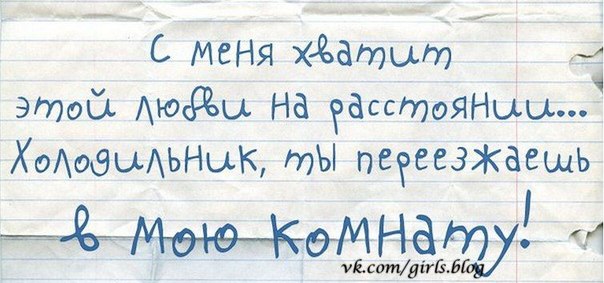 С меня хватит
этой любви на расстоянии...
Холодильник, ты переезжаешь
в мою комнату!
vk.com/girls.blog